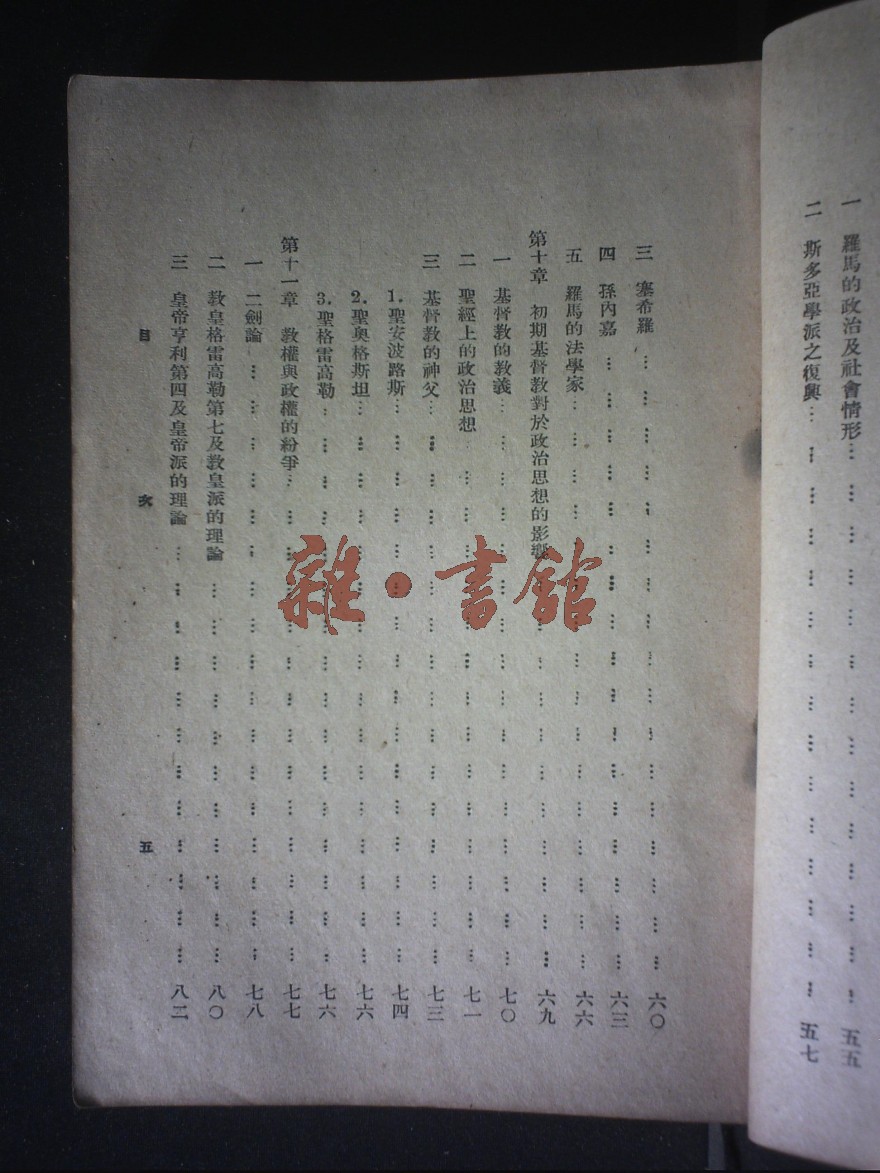 一　羅馬的政治及社會情形……五五
二　斯多亞學派之復興……五七
三　塞希羅……六〇
四　孫內嘉……六三
五　羅馬的法學家……六六
第十章　初期基督教對於政治思想的影響……六九
一　基督教的教義……七〇
二　聖經上的政治思想……七一
三　基督教的神父……七三
1.聖安波路斯……七四
2.聖奧格斯坦……七六
3.聖格雷高勒……七六
第十一章　教權與政權的紛爭……七七
一　二劍論……七八
二　教皇格雷高勒第七及教皇派的理論……八〇
三　皇帝亨利第四及皇帝派的理論……八二
目　次　五
雜·書館